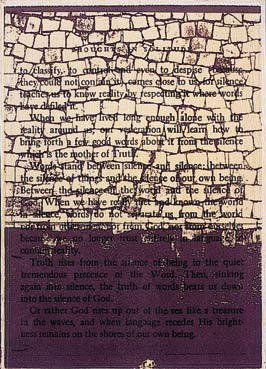 THOUGHTS IN SOLITUDE
to classify, to control and even to despise (because
they could not contain it) comes close to us, for silence
teaches us to know reality by respecting it where words
have defiled it.
When we have lived long enough alone with the
reality around us, our veneration will learn how to
bring forth a few good words about it from the silence
which is the mother of Truth.
Words stand between silence and silence: between
the silence of things and the silence of our own being.
Between the silence of the world and the silence of
God. When we have really met and known the world
in silence, words do not separate us from the world
nor from other men, nor from God, nor from ourselves
because we no longer trust entirely in language to
contain reality.
Truth rises from the silence of being to the quiet
tremendous presence of the Word. Then, sinking
again into silence, the truth of words bears us down
into the silence of God.
Or rather God rises up out of the sea like a treasure
in the waves, and when language recedes His bright-
ness remains on the shores of our own being.